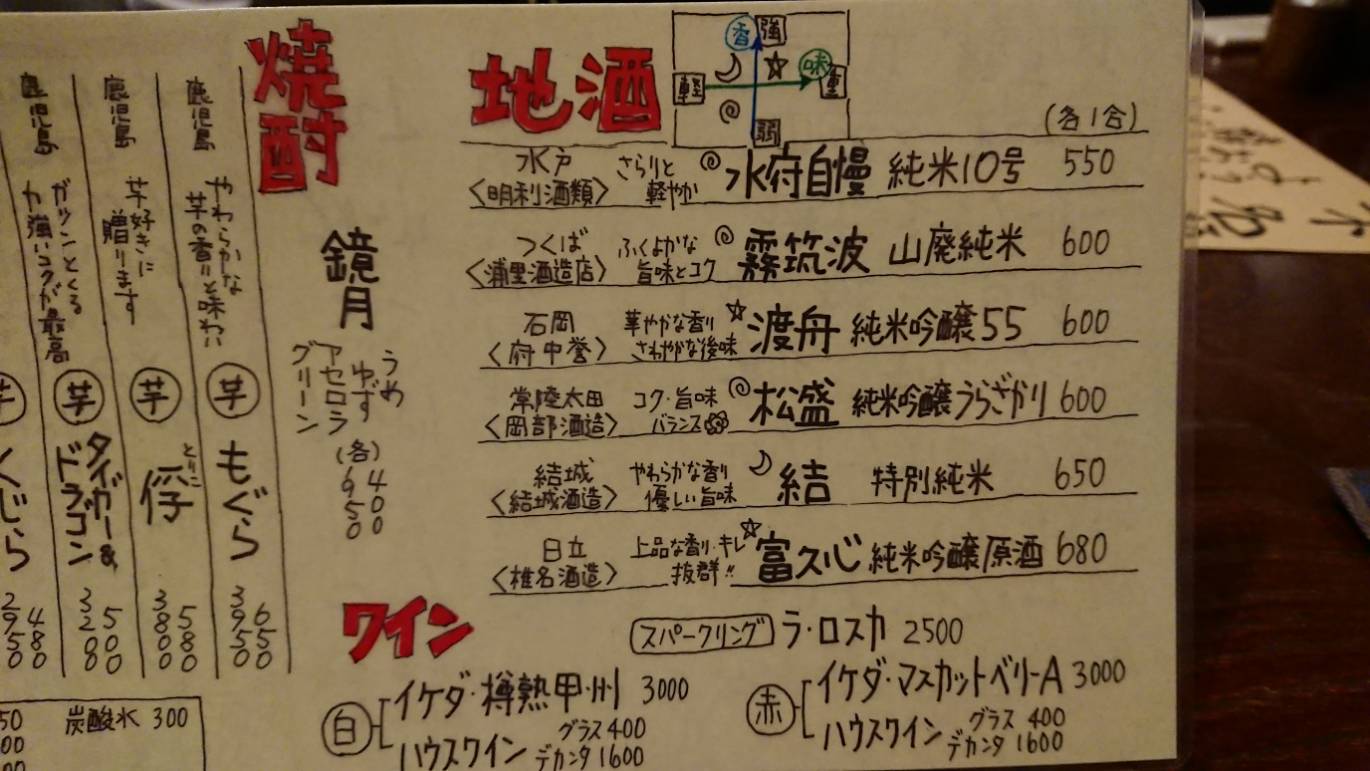 地酒
香
強
軽
味
重
弱
(各1合)
水戸
〈明利酒類〉
さらりと
軽やか
水府自慢 純米10号 550
つくば
〈浦里酒造店〉
ふくよかな
旨味とコク
霧筑波 山廃純米 600
石岡
〈府中誉〉
華やかな香り
さわやかな後味
渡舟 純米吟醸55 600
常陸太田
〈岡部酒造〉
コク・旨味
バランス
松盛 純米吟醸うらざかり 600
結城
〈結城酒造〉
やわらかな香り
優しい旨味
結 特別純米 650
日立
〈椎名酒造〉
上品な香り・キレ
抜群!!
富久心 純米吟醸原酒 680
焼酎
鏡月
うめ
ゆず
アセロラ
グリーン
(各)
400
950
鹿児島
やわらかな
芋の香りと味わい
芋
もぐら
650
3950
鹿児島
芋好きに
贈ります
芋
とりこ
俘
580
3800
鹿児島
ガツンとくる
力強いコクが最高
芋
タイガー&
ドラゴン
500
3200
芋
くじら
480
2950
ワイン
スパークリング ラ・ロスカ 2500
白
イケダ・樽熟甲州 3000
ハウスワイン
グラス 400
デカンタ 1600
赤
イケダ・マスカットベリーA 3000
ハウスワイン
グラス 400
デカンタ 1600
炭酸水 300